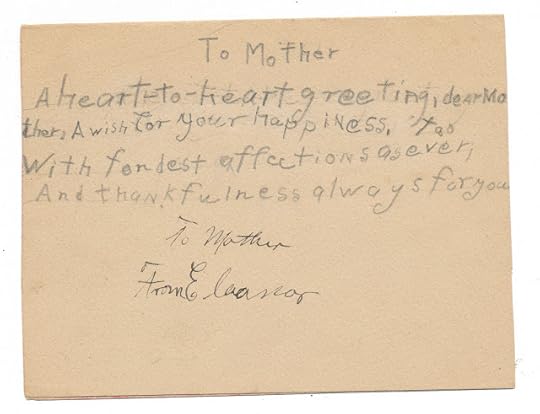 To Mother
A heart-to-heart greeting, dear Mo
ther, A wish for your happiness, too
With fondest affections as ever,
And thankfulness always for you
To Mother
From Eleanor